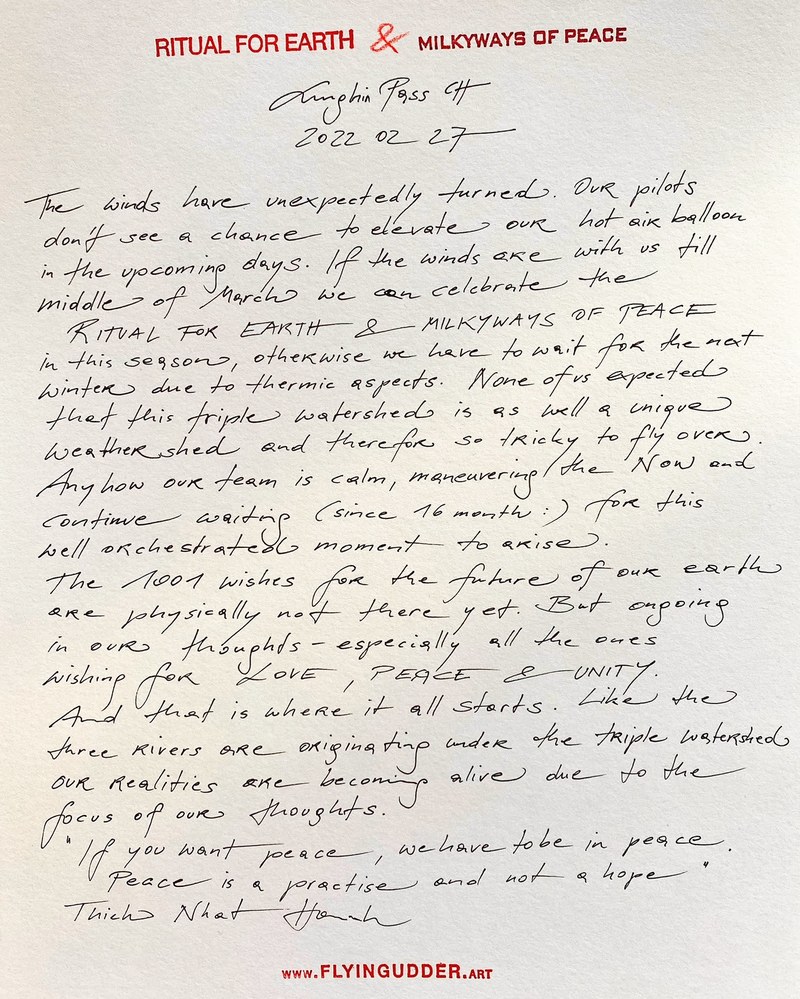 RITUAL FOR EARTH & MILKYWAYS OF PEACE
Lunghin Pass CH
2022 02 27
The winds have unexpectedly turned. Our pilots
don't see a chance to elevate our hot air balloon
in the upcoming days. If the winds are with us till
middle of March we can celebrate the
RITUAL FOR EARTH & MILKYWAYS OF PEACE
in this season, otherwise we have to wait for the next
winter due to thermic aspects. None of us expected
that this triple watershed is as well a unique
weather shed and therefor so tricky to fly over.
Anyhow our team is calm, maneuvering the Now and
continue waiting (since 16 month :) for this
well orchestrated moment to arise.
The 1001 wishes for the future of our earth
are physically not there yet. But ongoing
in our thoughts - especially all the ones
wishing for LOVE, PEACE & UNITY.
And that is where it all starts. Like the
three rivers are originating under the triple watershed
our realities are becoming alive due to the
focus of our thoughts.
"If you want peace, we have to be in peace.
Peace is a practise and not a hope"
Thich Nhat Hanh
www.FLYINGUDDER.ART